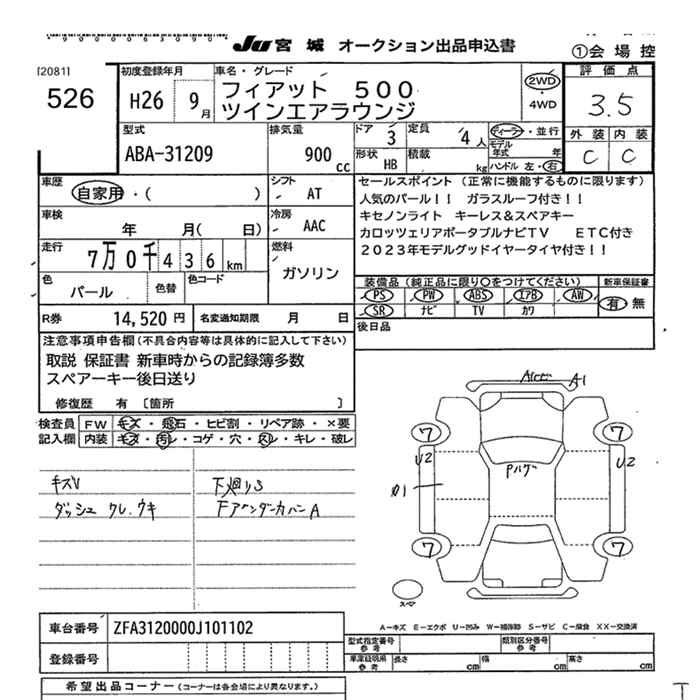 Ju 宮城 オークション出品申込書
①会場控
[2081]
526
初度登録年月
H26 9月
車名・グレード
フィアット 500
ツインエアラウンジ
2WD
・
4WD
評価点
3.5
外装 内装
C C
型式
ABA-31209
排気量
900 cc
ドア 3
定員 4人
形状 HB
積載 kg
ディーラー・並行
モデル年式 年
ハンドル 左・右
車歴
自家用・( )
シフト
AT
車検
年 月( 日)
冷房
AAC
走行
7万0千436km
燃料
ガソリン
色
パール
色替
色コード
R券 14,520円
名変通知期限 月 日
セールスポイント (正常に機能するものに限ります)
人気のパール!! ガラスルーフ付き!!
キセノンライト キーレス&スペアキー
カロッツェリアポータブルナビTV ETC付き
2023年モデルグッドイヤータイヤ付き!!
装備品 (純正品に限り○をつけてください)
新車保証書
PS PW ABS エアB AW
SR ナビ TV カワ
有 無
後日品
注意事項申告欄(不具合内容等は具体的に記入して下さい)
取説 保証書 新車時からの記録簿多数
スペアーキー後日送り
修復歴 有 〔箇所 〕
検査員記入欄
FW キズ・飛石・ヒビ割・リペア跡・×要
内装 キズ・汚レ・コゲ・穴・スレ・キレ・破レ
キズU
ダッシュ クレ.ウキ
下廻りS
FアンダーカバーA
A1
7 7
U2 U2
Pハゲ
7 7
スペア
A―キズ E―エクボ U―凹み W―補修跡 S―サビ C―腐食 XX―交換済
車台番号 ZFA3120000J101102
登録番号
型式指定番号 参考
類別区分番号 参考
車庫証明用 参考
長さ cm 幅 cm 高さ cm
希望出品コーナー(コーナーは各会場により異なります。)